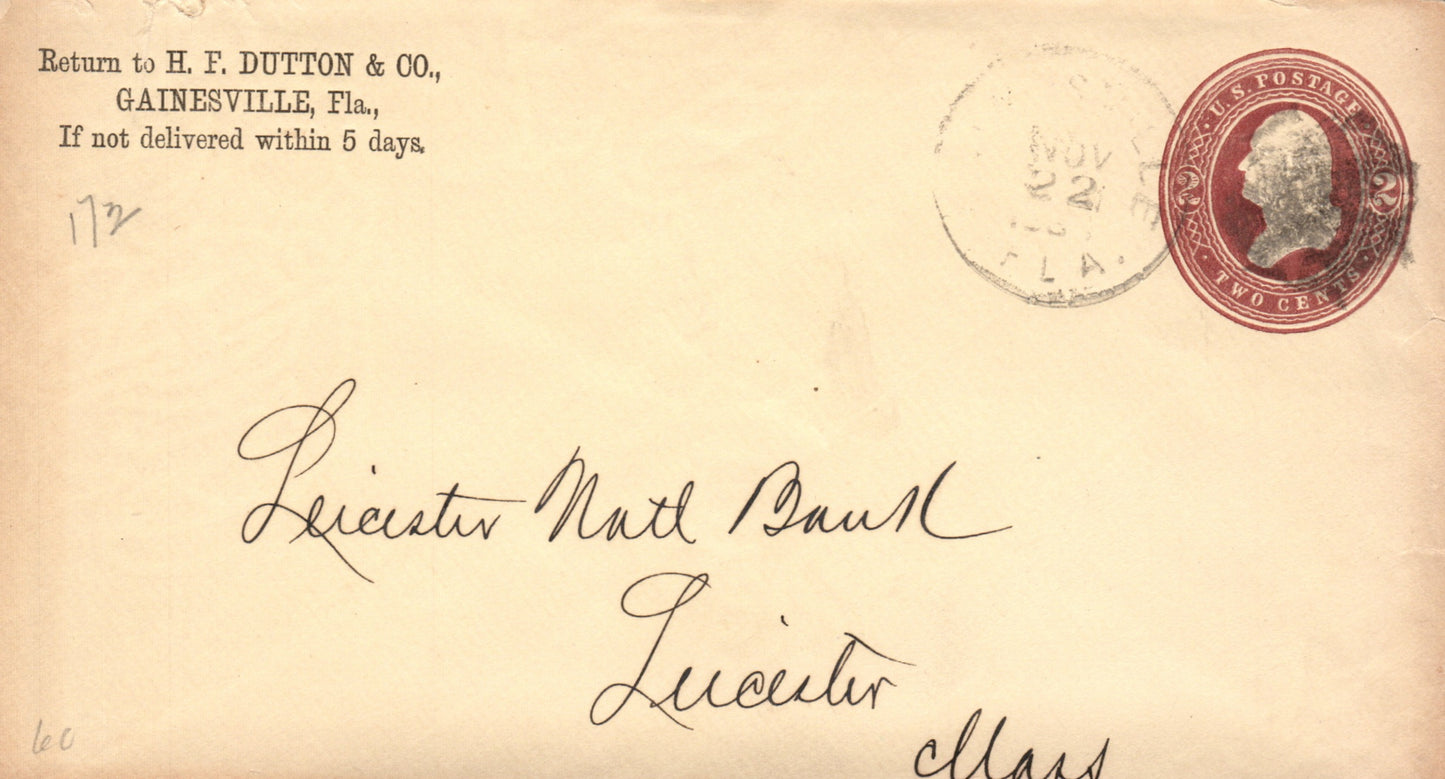 Return to H. F. DUTTON & CO.,
GAINESVILLE, Fla.,
If not delivered within 5 days.
172
NOV
22
FLA.
U.S. POSTAGE
2 2
TWO CENTS
Leicester Natl Bank
Leicester
Mass
60